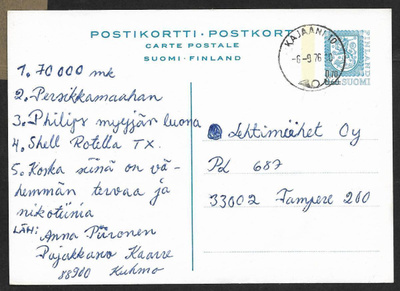 POSTIKORTTI - POSTKORT
CARTE POSTALE
SUOMI - FINLAND
KAJAANI 10
-6-9 76
FINLAND
SUOMI
1. 70 000 mk
2. Persikkamaahan
3. Philips myyjän luona
4. Shell Rotella TX.
5. Koska siinä on vä-
hemmän tervaa ja
nikotiinia
LÄH: Anna Piironen
Kaarre
88900 Kuhmo
Lehtimiehet Oy
PL 687
33002 Tampere 200